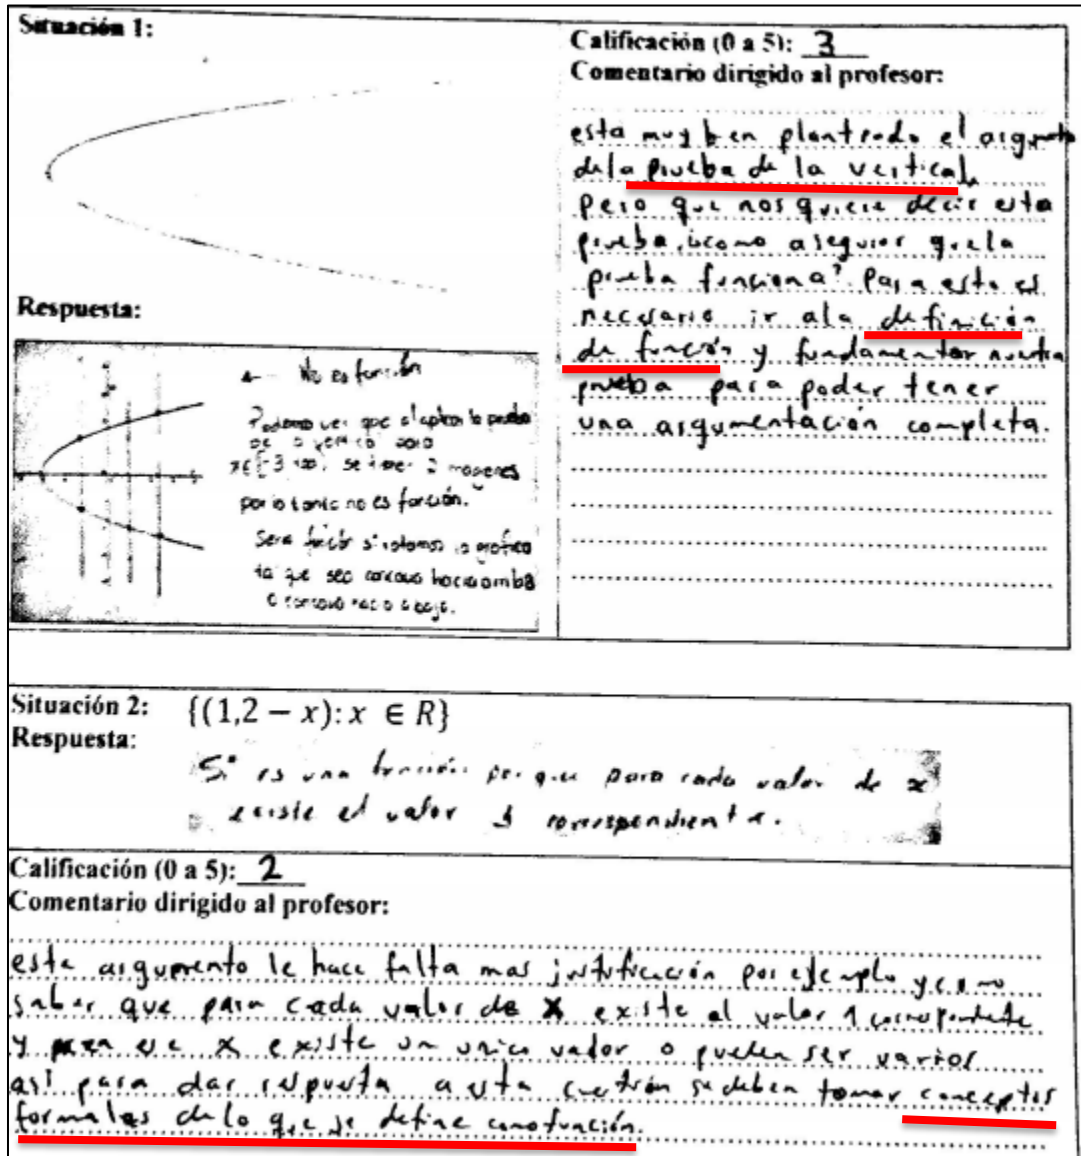 Situación 1:
Respuesta:
No es función
Podemos ver que al aplicar la prueba
de la vertical para
se tienen 2 imagenes
por lo tanto no es función.
Sera función si rotamos la grafica
ya que sea concava hacia arriba
o concava hacia abajo.
Calificación (0 a 5): 3
Comentario dirigido al profesor:
esta muy bien planteado el argumento
de la prueba de la vertical,
pero que nos quiere decir esta
prueba, ¿como asegurar que la
prueba funciona? Para esto es
necesario ir a la definición
de función y fundamentar nuestra
prueba para poder tener
una argumentación completa.
Situación 2: {(1,2 − x): x ∈ R}
Respuesta:
Si es una función porque para cada valor de x
existe el valor 1 correspondiente.
Calificación (0 a 5): 2
Comentario dirigido al profesor:
este argumento le hace falta mas justificación por ejemplo y como
saber que para cada valor de x existe el valor 1 correspondiente
y para ese x existe un unico valor o pueden ser varios
asi para dar respuesta a esta cuestión se deben tomar conceptos
formales de lo que se define como función.